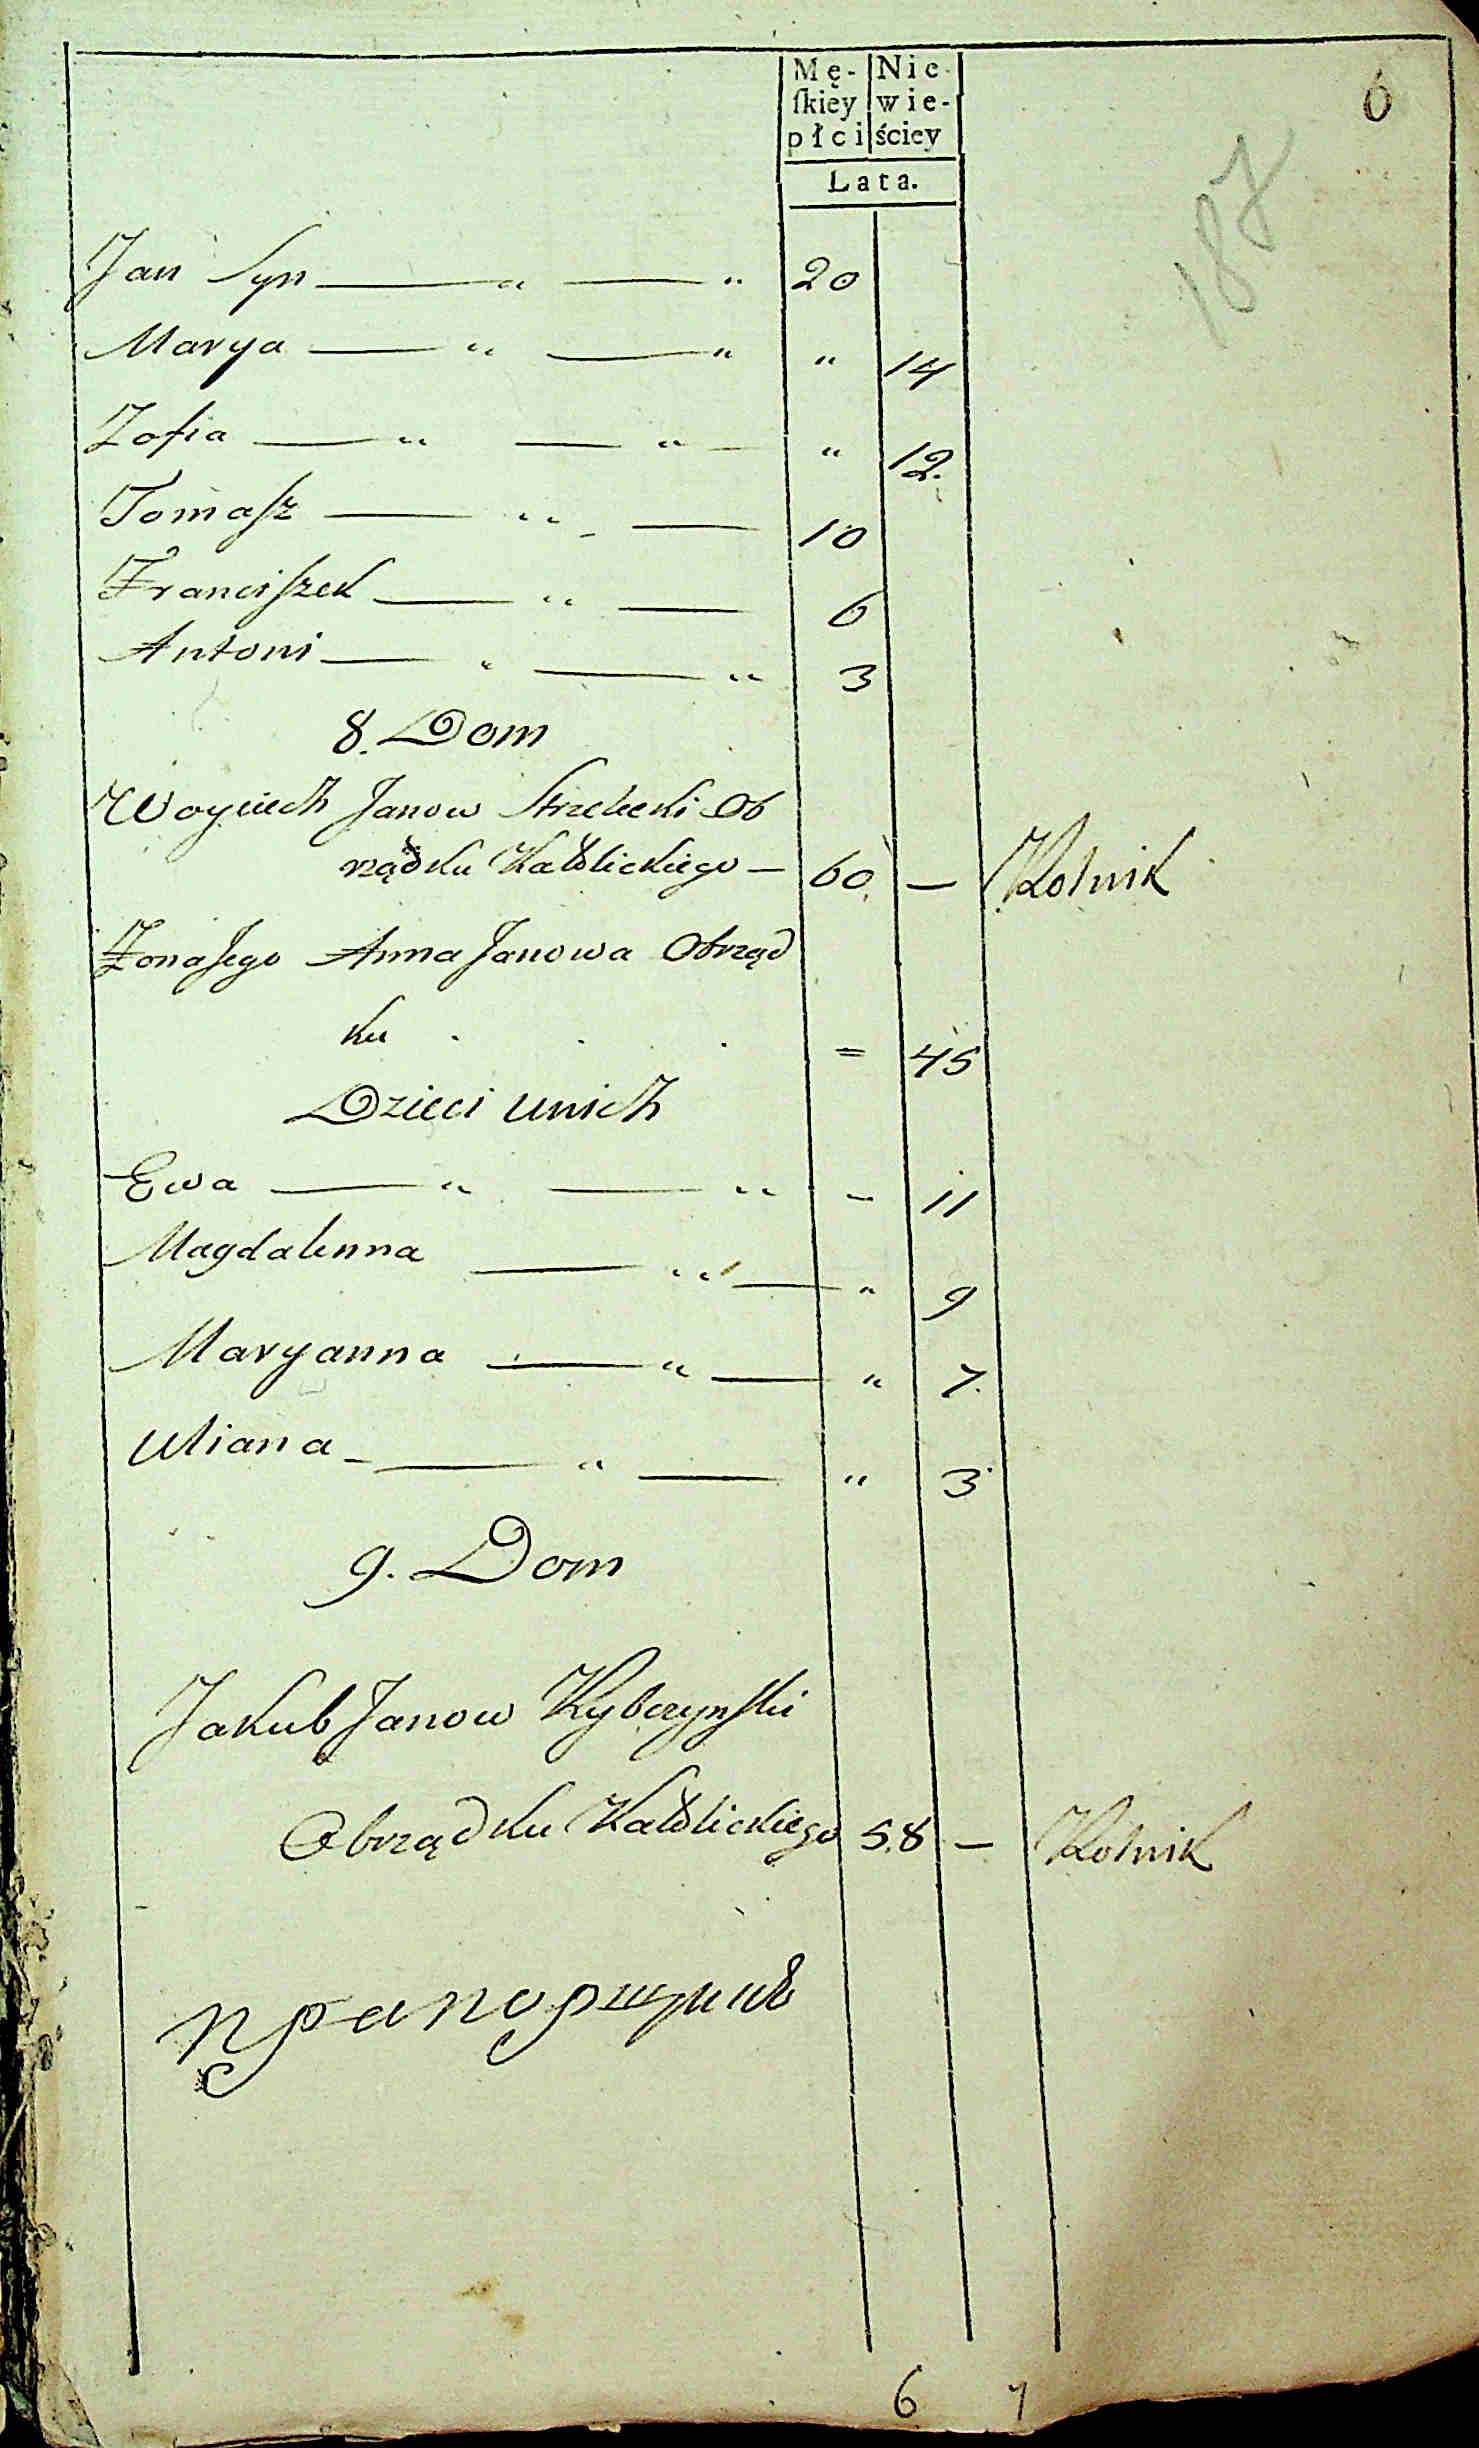 6
187
Mę- Nie-
ſkiey wie-
płci ściey
Lata.
Jan Syn — " — " 20
Marya — " — " " 14
Zofia — " — " — " 12.
Tomasz — " — 10
Franciszek — " — 6
Antoni — " — " 3
8. Dom
Woyciech Janow Strzelecki Ob
rządku Katolickiego — 60. — Rolnik
Żona Jego Anna Janowa Obrząd
ku . . . = 45
Dzieci unich
Ewa — " — " - 11
Magdalenna — " — " 9
Maryanna — " — " 7.
Uliana — " — " 3
9. Dom
Jakub Janow Rybczynski
Obrządku Katolickiego 58 — Rolnik
прапорщикъ
6 7